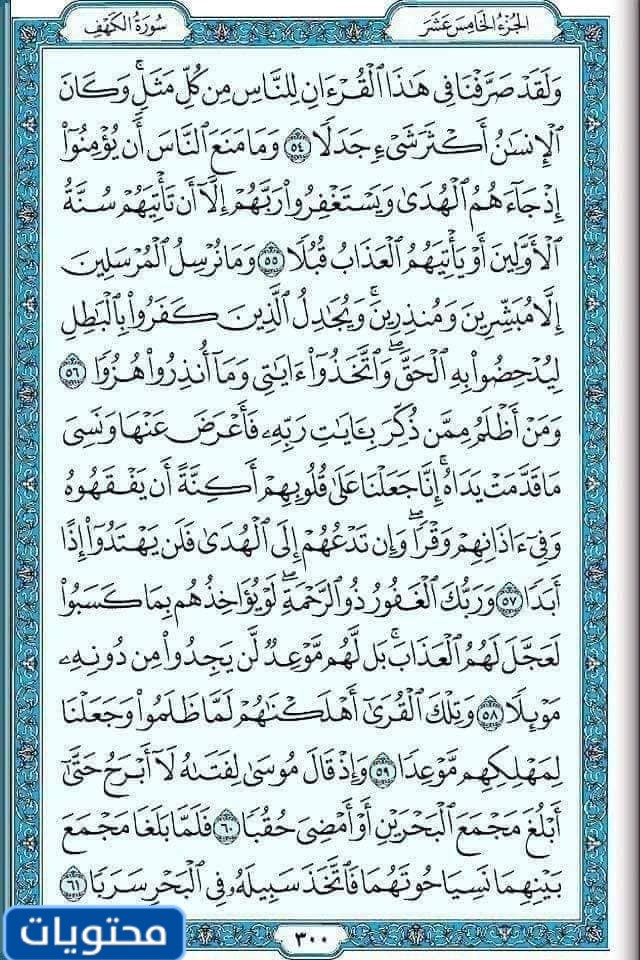 الجُزْءُ الخَامِسَ عَشَرَ
سُورَةُ الكَهْفِ
وَلَقَدْ صَرَّفْنَا فِي هَٰذَا الْقُرْءَانِ لِلنَّاسِ مِن كُلِّ مَثَلٍ ۚ وَكَانَ
الْإِنسَٰنُ أَكْثَرَ شَيْءٍ جَدَلًا ٥٤ وَمَا مَنَعَ النَّاسَ أَن يُؤْمِنُوٓا۟
إِذْ جَآءَهُمُ الْهُدَىٰ وَيَسْتَغْفِرُوا۟ رَبَّهُمْ إِلَّآ أَن تَأْتِيَهُمْ سُنَّةُ
الْأَوَّلِينَ أَوْ يَأْتِيَهُمُ الْعَذَابُ قُبُلًا ٥٥ وَمَا نُرْسِلُ الْمُرْسَلِينَ
إِلَّا مُبَشِّرِينَ وَمُنذِرِينَ ۚ وَيُجَٰدِلُ الَّذِينَ كَفَرُوا۟ بِالْبَٰطِلِ
لِيُدْحِضُوا۟ بِهِ الْحَقَّ ۖ وَاتَّخَذُوٓا۟ ءَايَٰتِي وَمَآ أُنذِرُوا۟ هُزُوًا ٥٦
وَمَنْ أَظْلَمُ مِمَّن ذُكِّرَ بِـَٔايَٰتِ رَبِّهِۦ فَأَعْرَضَ عَنْهَا وَنَسِيَ
مَا قَدَّمَتْ يَدَاهُ ۚ إِنَّا جَعَلْنَا عَلَىٰ قُلُوبِهِمْ أَكِنَّةً أَن يَفْقَهُوهُ
وَفِيٓ ءَاذَانِهِمْ وَقْرًا ۖ وَإِن تَدْعُهُمْ إِلَى الْهُدَىٰ فَلَن يَهْتَدُوٓا۟ إِذًا
أَبَدًا ٥٧ وَرَبُّكَ الْغَفُورُ ذُو الرَّحْمَةِ ۖ لَوْ يُؤَاخِذُهُم بِمَا كَسَبُوا۟
لَعَجَّلَ لَهُمُ الْعَذَابَ ۚ بَل لَّهُم مَّوْعِدٌ لَّن يَجِدُوا۟ مِن دُونِهِۦ
مَوْئِلًا ٥٨ وَتِلْكَ الْقُرَىٰٓ أَهْلَكْنَٰهُمْ لَمَّا ظَلَمُوا۟ وَجَعَلْنَا
لِمَهْلِكِهِم مَّوْعِدًا ٥٩ وَإِذْ قَالَ مُوسَىٰ لِفَتَىٰهُ لَآ أَبْرَحُ حَتَّىٰٓ
أَبْلُغَ مَجْمَعَ الْبَحْرَيْنِ أَوْ أَمْضِيَ حُقُبًا ٦٠ فَلَمَّا بَلَغَا مَجْمَعَ
بَيْنِهِمَا نَسِيَا حُوتَهُمَا فَاتَّخَذَ سَبِيلَهُۥ فِي الْبَحْرِ سَرَبًا ٦١
٣٠٠
محتويات